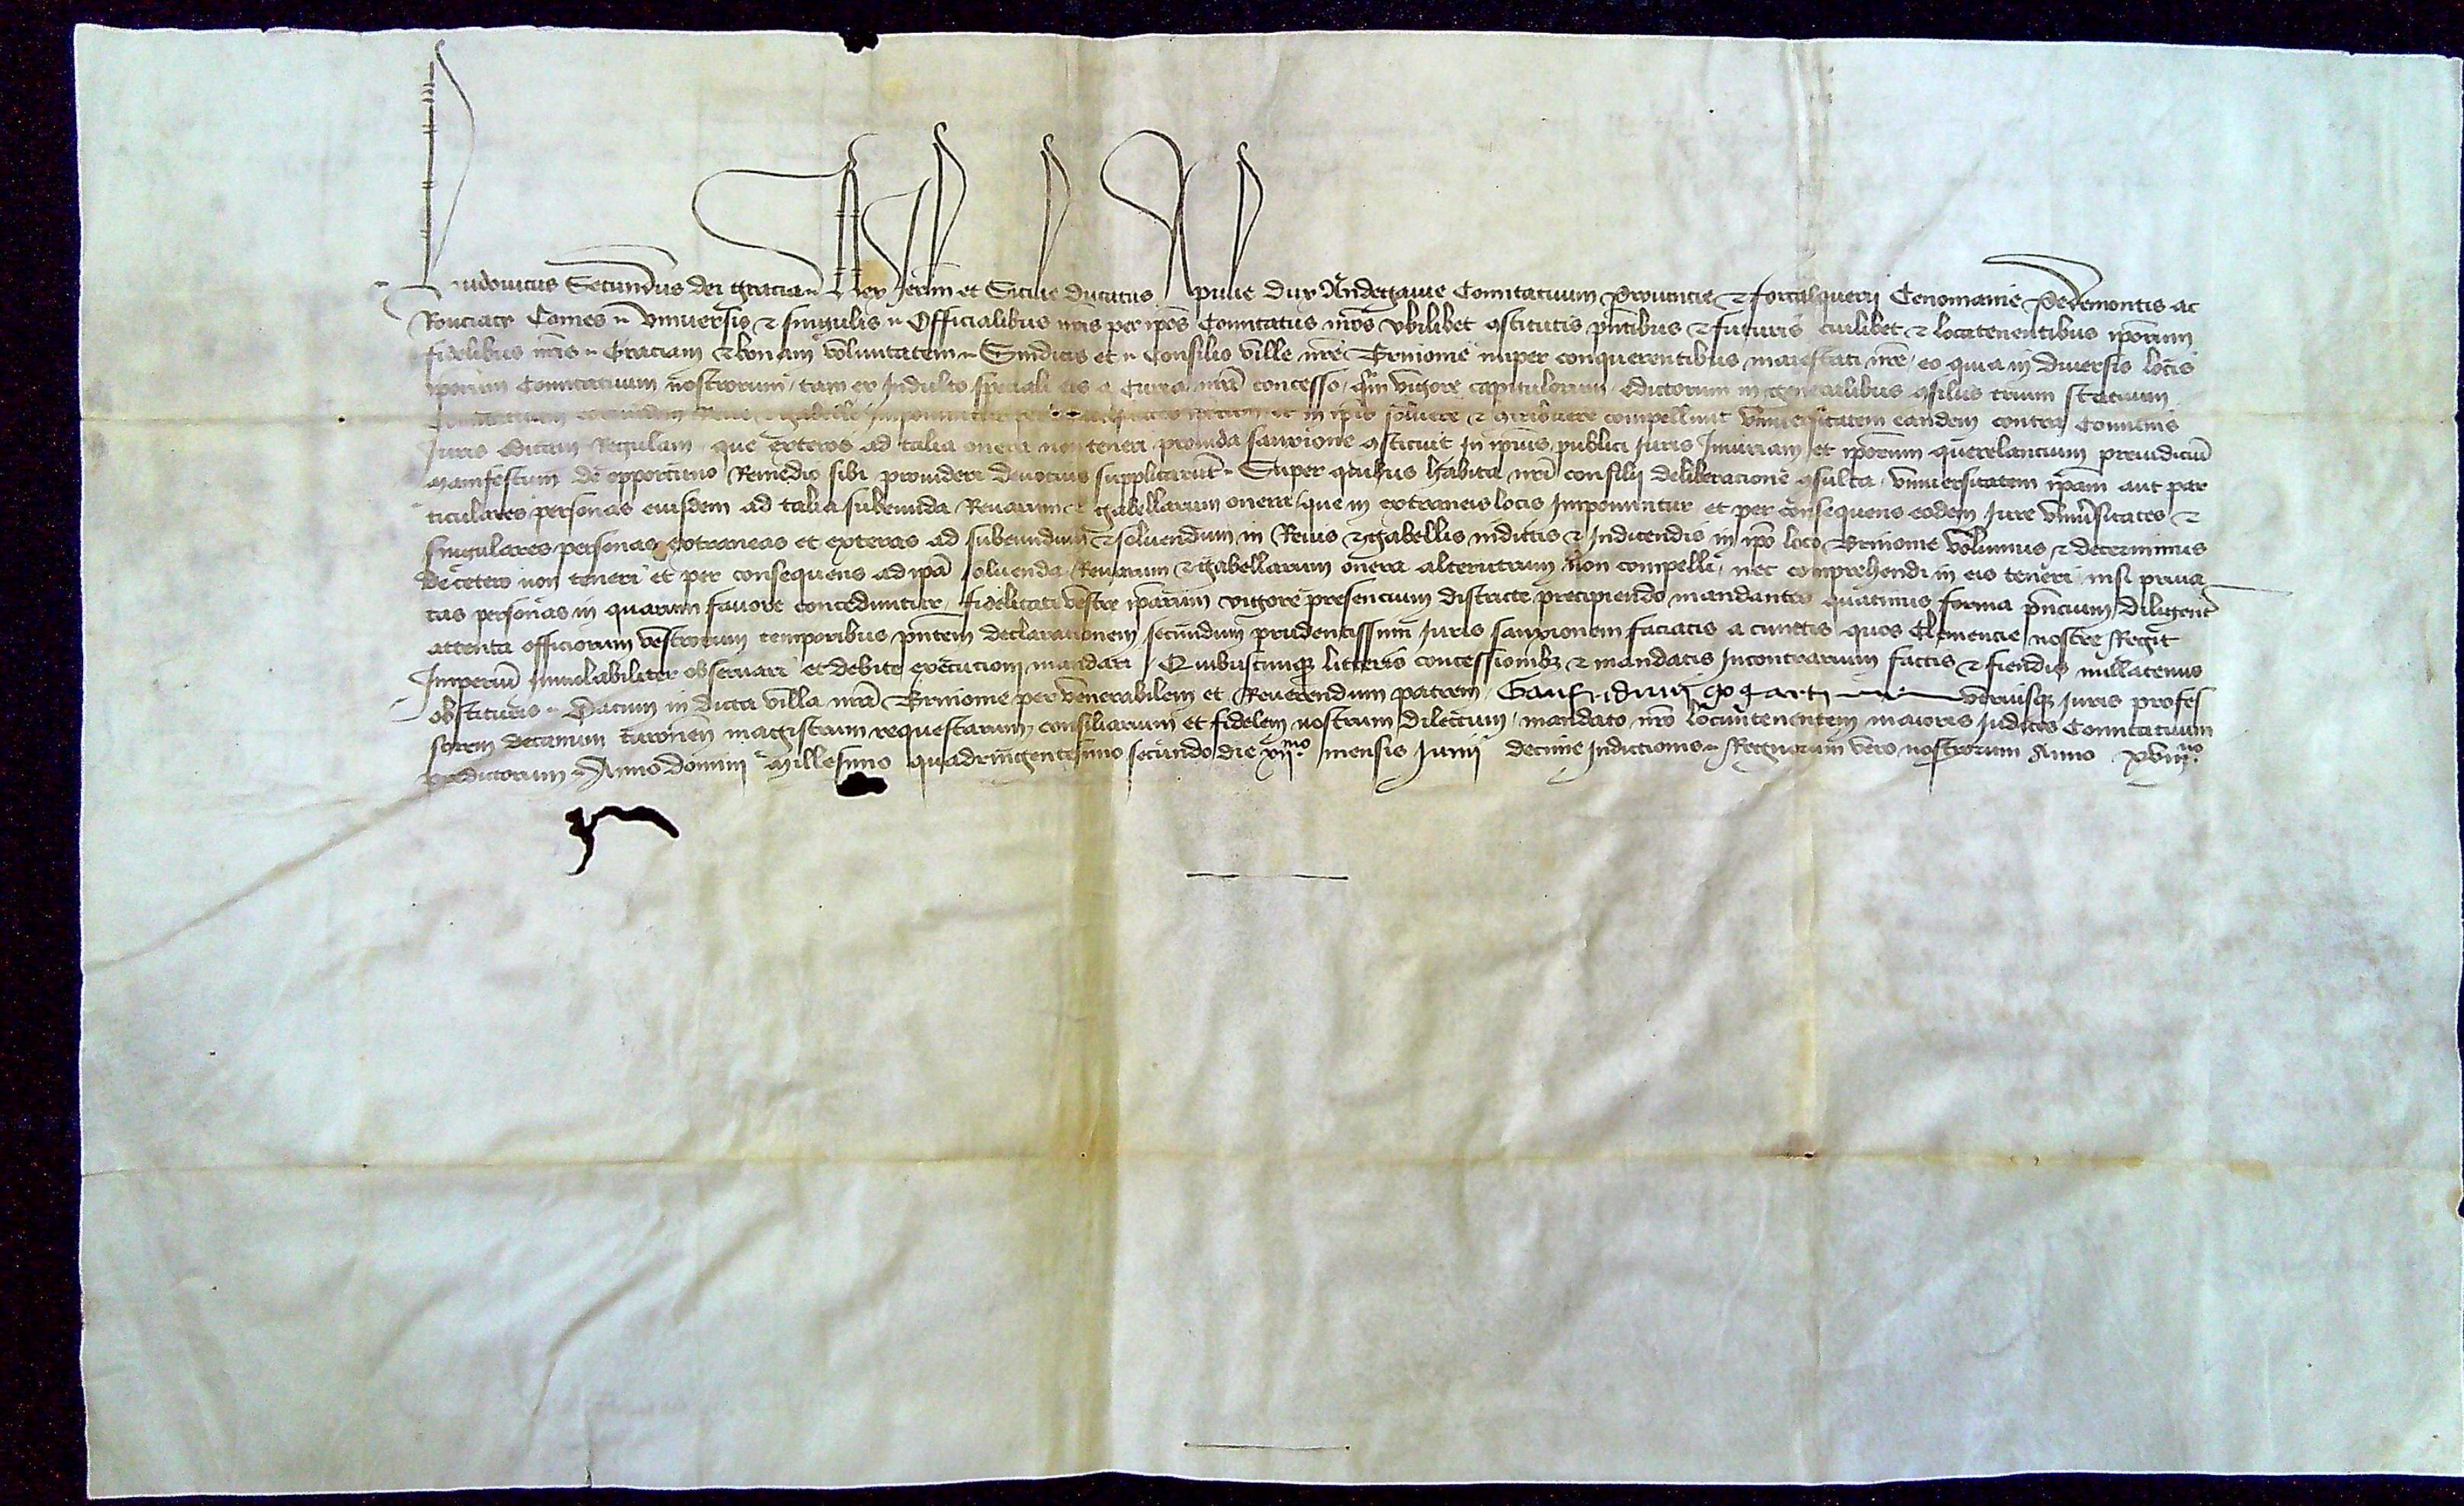 Ludovicus Secundus dei gracia Rex Jerlm et Sicilie ducatus Apulie dux Andegavie Comitatuum Provincie & forcalquerii Cenomanie Pedemontis ac
Ronciacy Comes Universis & singulis Officialibus nris per ipos Comitatus nros ubilibet ostitutis pntibus & futuris cuilibet & locatenentibus ipORum
fidelibus nris Graciam & bonam voluntatem Sindicis et Consilio ville nre Brinonie nuper conquerentibus maiestati nre eo quia in diversis locis
iporum Comitatuum nostrorum tam ex Indulto speciali eis a Curia nra concesso qm vigore capitulorum Edictorum in generalibus osiliis trium statuum
et in ipis solvere & compellunt Universitatem eandem contra Comunis
Juris dictam Regulam que exteros ad talia onera non teneri provida sanxione ostituit In ipius publici Juris Iniuriam et iporum querelancium preiudiciu
manifestum de opportuno Remedio sibi provideri devocius supplicarut Super quibus habita nri consilii deliberacione osulta Universitatem ipam aut par
ticulares personas eiusdem ad talia subeunda Revarum & gabellarum onera que in extraneis locis Imponuntur et per consequens eodem Jure universitates &
singulares personas extraneas et exteras ad subeundum & solvendum in Revis & gabellis indictis & Indicendis in ipo loco Brinonie volumus & decernimus
de cetero non teneri et per consequens ad ipa solvenda Revarum & gabellarum onera alterutrum non compelli nec comprehendi in eis teneri nisi priva
tas personas in quarum favore conceduntur fidelitati vestre iparum vigore presencium districte precipiendo mandantes quatinus forma pncium diligent
attenta officiorum vestrorum temporibus pntem declaracionem secundum prudentissimi Juris sanxionem faciatis a cunctis quos Clemencie nostre Regit
Imperiu Inviolabiliter observari et debite execucioni mandari Quibuscunq litteris concessionibz & mandatis Incontrarium factis & fiendis nullatenus
obstituris Datum in dicta villa nra Brinonie per venerabilem et Reverendum patrem Gaufridum utriusq Juris profes
sorem decanum turonen magistrum requestarum consiliarium et fidelem nostrum dilectum mandato nro locumtenentem maioris Judicis Comitatuum
predictorum Anno domini Millesimo quadringentesimo secundo die mensis Junii decime Indictionis Regnorum vero nostrorum Anno